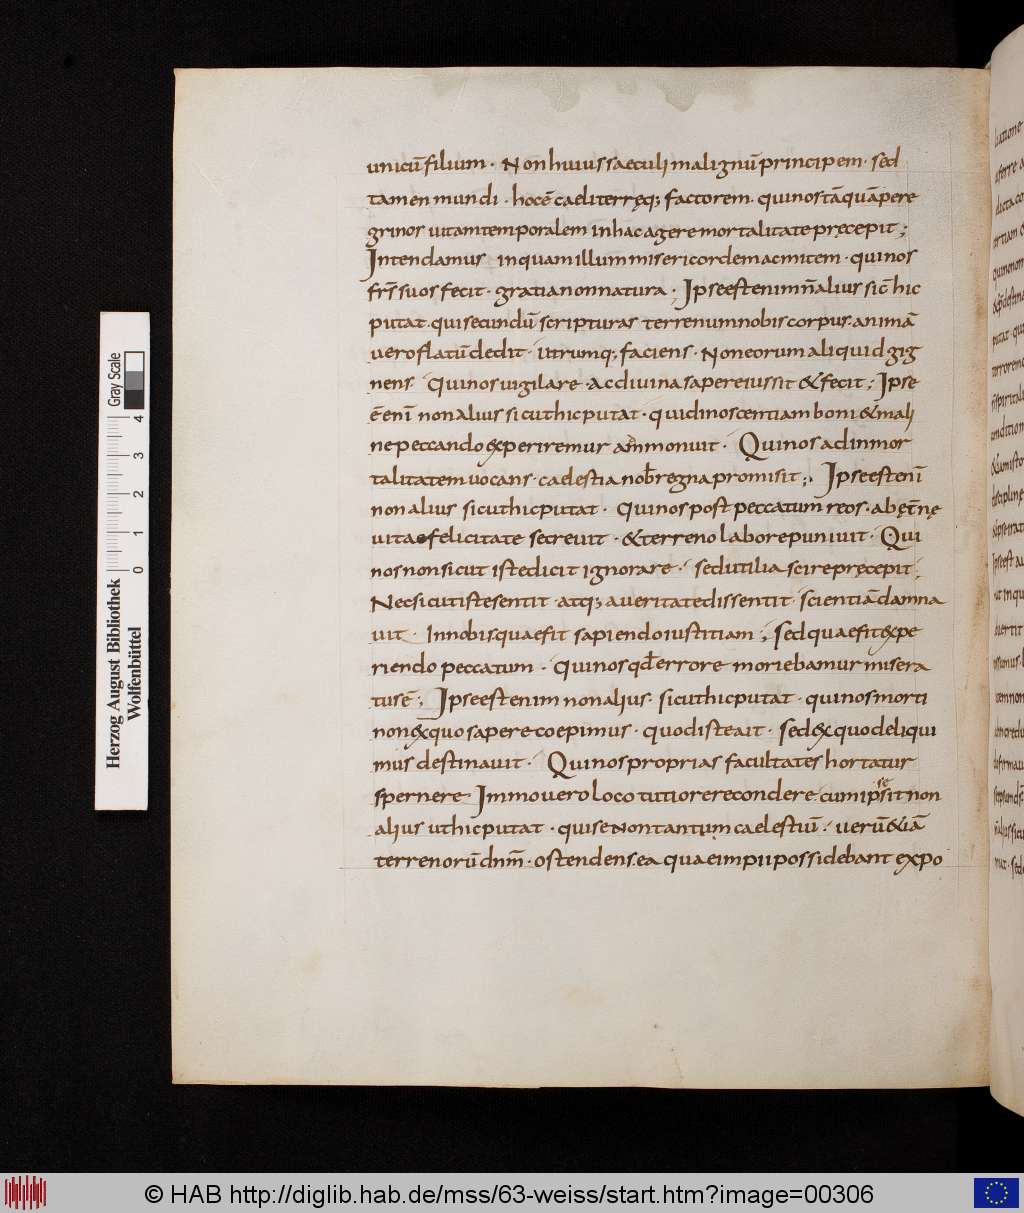 unicũ filium · Non huius saeculi malignũ principem · sed
tamen mundi · hoc ẽ caeli terręq; factorem · qui nos tãquã pere
grinos uitam temporalem in hac agere mortalitate pręcepit ;
Intendamus inquam illum misericordem ac mitem · qui nos
fr̃s suos fecit · gratia non natura ; Ipse est enim ñ alius sic̃ hic
putat · qui secundũ scripturas terrenum nobis corpus · animã
uero flatũ dedit · utrumq; faciens · Non eorum aliquid gig
nens · Qui nos uigilare · Ac diuina sapere iussit & fecit ; Ipse
ẽ enĩ non alius sicut hic putat · qui dinoscentiam boni & mali
ne peccando experiremur ammonuit · Qui nos ad inmor
talitatem uocans · caelestia nob̃ regna promisit ; Ipse est enĩ
non alius sicut hic putat · Qui nos post peccatum reos · ab ęt̃nę
uitae felicitate secreuit · & terreno labore puniuit · Qui
nos non sicut iste dicit ignorare · sed utilia scire pręcepit ;
Nec sicut iste sentit · atq; a ueritate dissentit · scientiã damna
uit · In nobis quae fit sapiendo iustitiam ; Sed quae fit expe
riendo peccatum · Qui nos qđ errore moriebamur misera
tus ẽ ; Ipse est enim non alius · sicut hic putat · qui nos morti
non ex quo sapere coepimus · quod iste ait · sed ex quo deliqui
mus destinauit · Qui nos proprias facultates hortatur
spernere Immo uero loco tutiore recondere cum ipse sit non
alius ut hic putat · qui se non tantum caelestiũ · uerũ &iã
terrenorũ dnm̃ · ostendens ea quae impii possidebant expo
Herzog August Bibliothek
Wolfenbüttel
0 1 2 3 4
Gray Scale
© HAB http://diglib.hab.de/mss/63-weiss/start.htm?image=00306